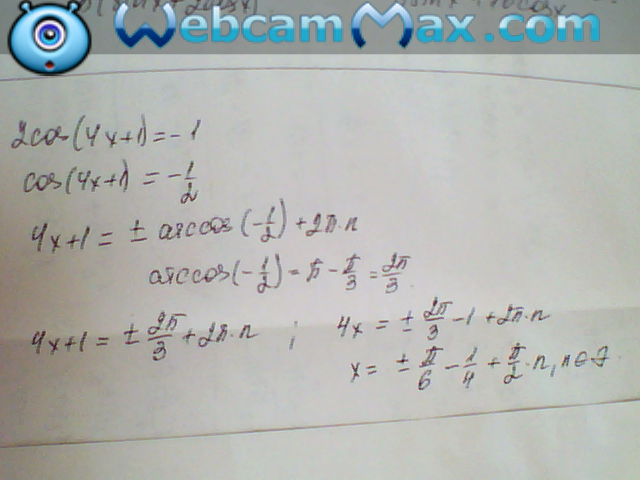 WebcamMax.com
2cos(4x+1)=-1
cos(4x+1) = -1/2
4x+1 = ± arccos(-1/2)+2π·n
arccos(-1/2) = π - π/3 = 2π/3
4x+1 = ± 2π/3 + 2π·n ; 4x = ± 2π/3 - 1 + 2π·n
x = ± π/6 - 1/4 + π/2·n, n∈Z